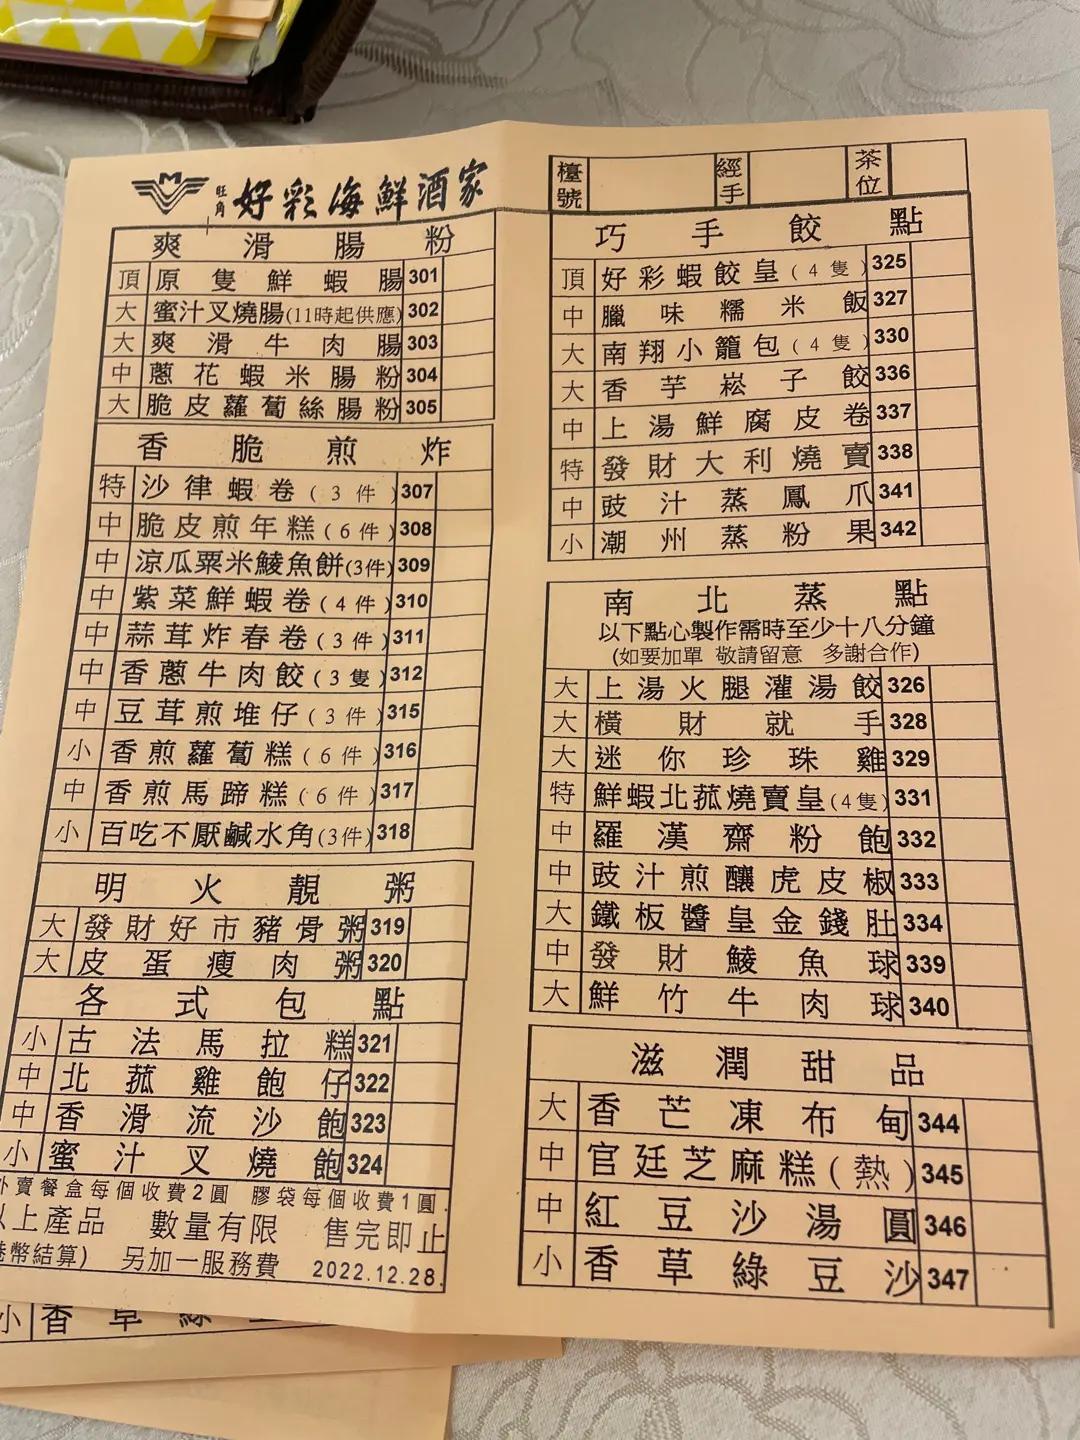 旺角 好彩海鮮酒家
爽滑腸粉
頂 原隻鮮蝦腸 301
大 蜜汁叉燒腸(11時起供應) 302
大 爽滑牛肉腸 303
中 蔥花蝦米腸粉 304
大 脆皮蘿蔔絲腸粉 305
香脆煎炸
特 沙律蝦卷(3件) 307
中 脆皮煎年糕(6件) 308
中 涼瓜粟米鯪魚餅(3件) 309
中 紫菜鮮蝦卷(4件) 310
中 蒜茸炸春卷(3件) 311
中 香蔥牛肉餃(3隻) 312
中 豆茸煎堆仔(3件) 315
小 香煎蘿蔔糕(6件) 316
中 香煎馬蹄糕(6件) 317
小 百吃不厭鹹水角(3件) 318
明火靚粥
大 發財好市豬骨粥 319
大 皮蛋瘦肉粥 320
各式包點
小 古法馬拉糕 321
中 北菰雞飽仔 322
中 香滑流沙飽 323
小 蜜汁叉燒飽 324
外賣餐盒每個收費2圓 膠袋每個收費1圓.
以上產品 數量有限 售完即止
港幣結算) 另加一服務費 2022.12.28.
小 香草綠
檯號 經手 茶位
巧手餃點
頂 好彩蝦餃皇(4隻) 325
中 臘味糯米飯 327
大 南翔小籠包(4隻) 330
大 香芋崧子餃 336
中 上湯鮮腐皮卷 337
特 發財大利燒賣 338
中 豉汁蒸鳳爪 341
小 潮州蒸粉果 342
南北蒸點
以下點心製作需時至少十八分鐘
(如要加單 敬請留意 多謝合作)
大 上湯火腿灌湯餃 326
大 橫財就手 328
大 迷你珍珠雞 329
特 鮮蝦北菰燒賣皇(4隻) 331
中 羅漢齋粉飽 332
中 豉汁煎釀虎皮椒 333
大 鐵板醬皇金錢肚 334
中 發財鯪魚球 339
大 鮮竹牛肉球 340
滋潤甜品
大 香芒凍布甸 344
中 官廷芝麻糕(熱) 345
中 紅豆沙湯圓 346
小 香草綠豆沙 347